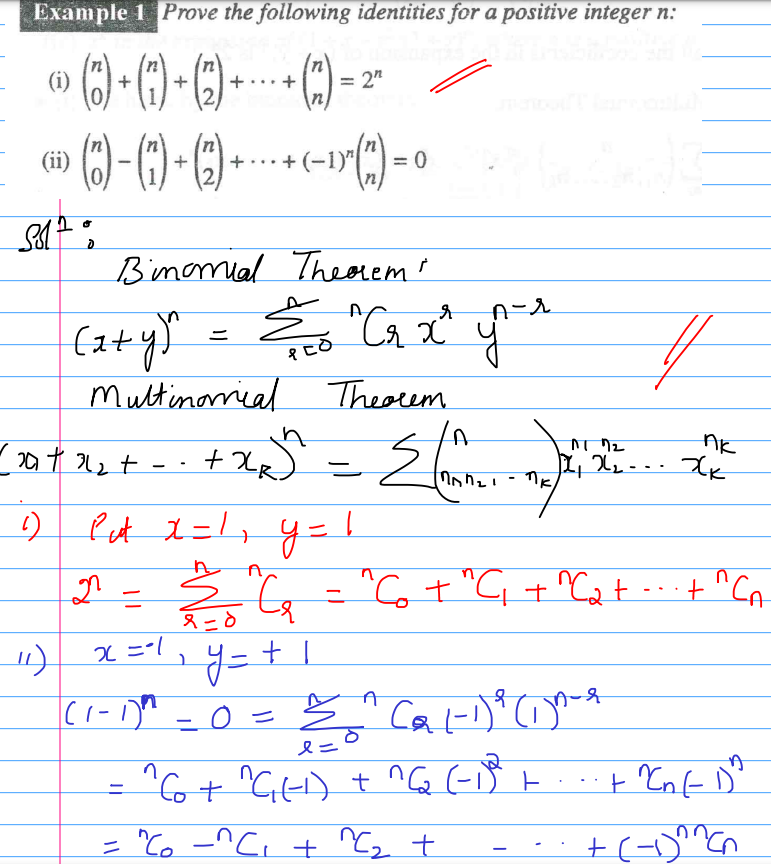 Example 1 Prove the following identities for a positive integer n:
(i) (n 0) + (n 1) + (n 2) + ··· + (n n) = 2ⁿ
(ii) (n 0) − (n 1) + (n 2) + ··· + (−1)ⁿ(n n) = 0
Solⁿ:
Binomial Theorem:
(x+y)ⁿ = Σ_{r=0}^{n} ⁿCr xʳ yⁿ⁻ʳ
Multinomial Theorem
(x₁ + x₂ + - - · + x_k)ⁿ = Σ (n n₁, n₂, · - n_k) x₁^{n₁} x₂^{n₂} - - - x_k^{n_k}
i) Put x=1, y=1
2ⁿ = Σ_{r=0}^{n} ⁿCr = ⁿC₀ + ⁿC₁ + ⁿC₂ + - - · + ⁿCn
ii) x=-1, y=+1
(1-1)ⁿ = 0 = Σ_{r=0}^{n} ⁿCr (-1)ʳ (1)ⁿ⁻ʳ
= ⁿC₀ + ⁿC₁(-1) + ⁿC₂ (-1)² + · · · + ⁿCn (-1)ⁿ
= ⁿC₀ - ⁿC₁ + ⁿC₂ + - · · + (-1)ⁿ ⁿCn